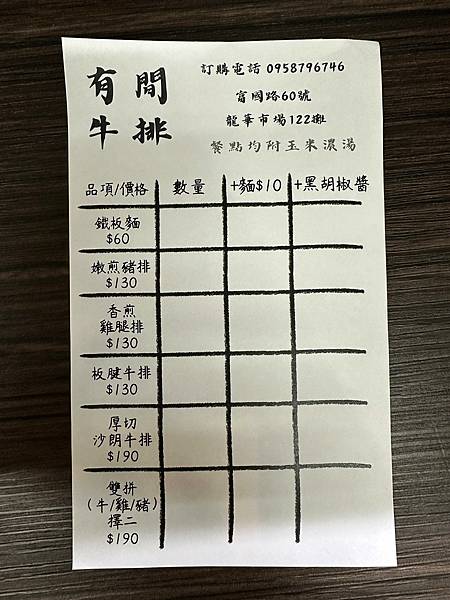 有間
牛排
訂購電話 0958796746
富國路60號
龍華市場122攤
餐點均附玉米濃湯
品項/價格 數量 +麵$10 +黑胡椒醬
鐵板麵
$60
嫩煎豬排
$130
香煎
雞腿排
$130
板腱牛排
$130
厚切
沙朗牛排
$190
雙拼
(牛/雞/豬)
擇二
$190